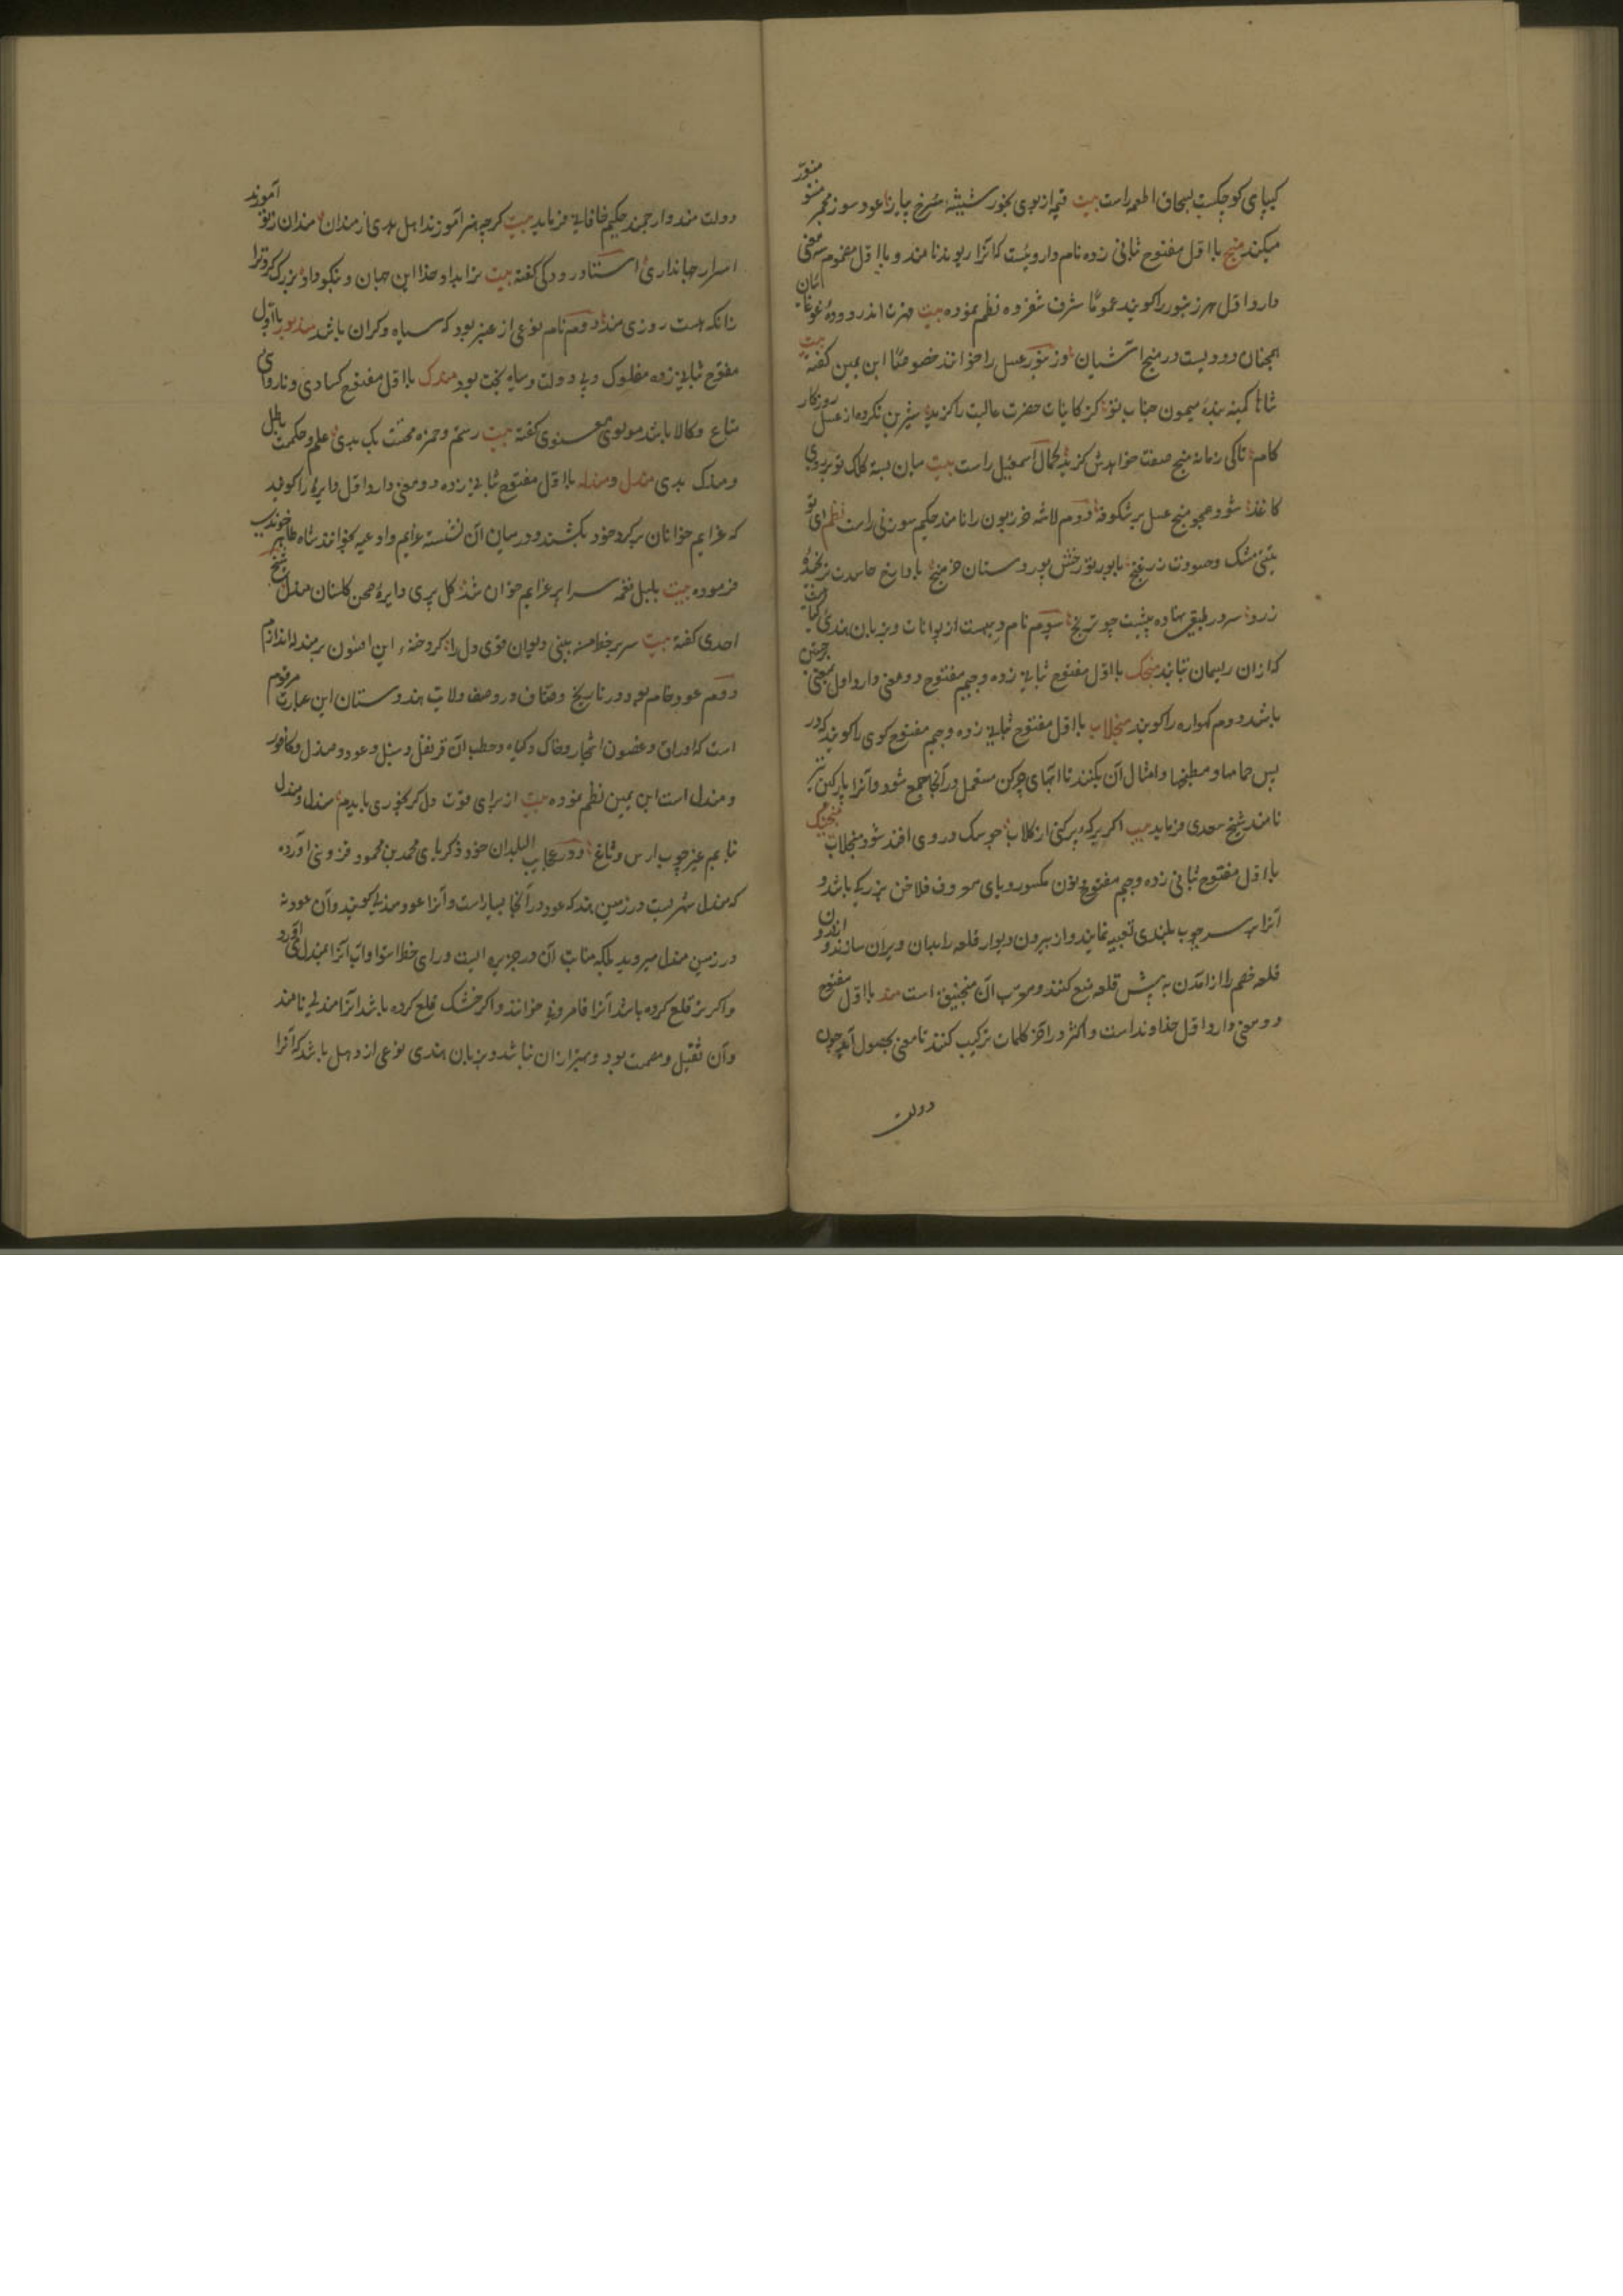 کیپای کوچکست بسحاق اطعمه راست بیت قیمه از بوی بخور شیشه سرخ پیاز عود سوز مجمر منور
میکند منج با اول مفتوح ثانی زده نام داروئیست که آنرا ریوند نامند و با اول مضموم سه معنی
دارد اول هر زنبور را گویند عموما شرف شفروه نظم نموده بیت اندر دوده غوغا
همچنان دود یست در منج آشیان و زنبور عسل را خوانند خصوصا ابن یمین گفته بیت
شاها کمینه بنده میمون جناب تو کز کاینات حضرت عالیت را گزید شیرین نکرده از عسل روزگار
کام تا کی زمانه منج صفت خواهدش گزید کمال اسمعیل راست بیت میان بسته کلک تو بر روی
کاغذ شود همچو منج عسل بر شکوفه دوم لاشه خر زبون را نامند حکیم سوزنی راست نظم ای تو
زرد سرور طبق نهاده به پیشت چو ترنج سوم نام دیهست از بوانات و بزبان هندی
که از آن ریسمان تابند منجک با اول مفتوح ثانی زده و جیم مفتوح دو معنی دارد اول بمعنی جستن
باشد دوم گهواره را گویند منجلاب با اول مفتوح ثانی زده و جیم مفتوح گوی را گویند که در
پس حمامها و مطبخها و امثال آن بکنند تا آبهای چرکن مستعمل در آنجا جمع شود و آنرا پارگین نیز
نامند شیخ سعدی فرماید بیت اگر برکه پر کنی از گلاب چو سگ در وی افتد شود منجلاب منجنیک
با اول مفتوح ثانی زده و جیم مفتوح نون مکسور و یای معروف فلاخن بزرگ باشد و
آنرا بر سر چوب بلندی تعبیه نمایند و از بیرون دیوار قلعه را بدان ویران سازند و اندرون
قلعه خصم را از آمدن به پیش قلعه منع کنند و معرب آن منجنیق است مند با اول مفتوح
دو معنی دارد اول خداوند است و اکثر در آخر کلمات ترکیب کنند تا معنی بحصول آید چون
دولت
دولت مند و ارجمند حکیم خاقانی فرماید بیت گرچه هنر آموزند اهل هدی از مندان مندان ز تو آموزند
اسرار جهانداری استاد رودکی گفته بیت
زانکه هست روزی مند دوم نام نوعی از عنبر بود که سیاه و گران باشد مندبور با اول
مفتوح ثانی زده مفلوک و بی دولت و سیاه بخت بود مندک با اول مفتوح کسادی و ناروائی
متاع و کالا باشد مولوی معنوی گفته بیت رستم و حمزه مخنث یک بدی علم و حکمت باطل
و مندک بدی مندل و مندله با اول مفتوح ثانی زده دو معنی دارد اول دایره را گویند
که عزایم خوانان بر گرد خود بکشند و در میان آن نشسته عزایم و ادعیه بخوانند شاه طاهر
فرموده بیت بلبل نغمه سرا بر عزایم خوان شد گل پری دایره صحن گلستان مندل شیخ
احدی گفته بیت دیوان قوی دل را این افسون بر مندله اندازم
دوم عود خام بود و در تاریخ وصاف در وصف ولایت هندوستان این عبارت مرقوم
است که اوراق و غصون اشجار و خاک و گیاه و حطب آن قرنفل و سنبل و عود و مندل و کافور
و مندل است ابن یمین نظم نموده بیت از برای قوت دل گر بخوری بایدم صندل و مندل
نایم غیر چوب ارس و تاغ و در عجایب البلدان خود ذکریای محمد بن محمود قزوینی آورده
که مندل شهریست در زمین هند که عود در آنجا بسیار است و آنرا عود مندلی گویند و آن عود نه
در زمین مندل میروید بلکه منابت آن در جزیره الیست ورای خط استوا و آب آنرا بمندل می آورد
و اگر تر قلع کرده باشد آنرا قامرونی خوانند و اگر خشک قلع کرده باشد آنرا مندلی نامند
و آن ثقیل و مصمت بود و بهتر از آن نباشد و بزبان هندی نوعی از دهل باشد که آنرا